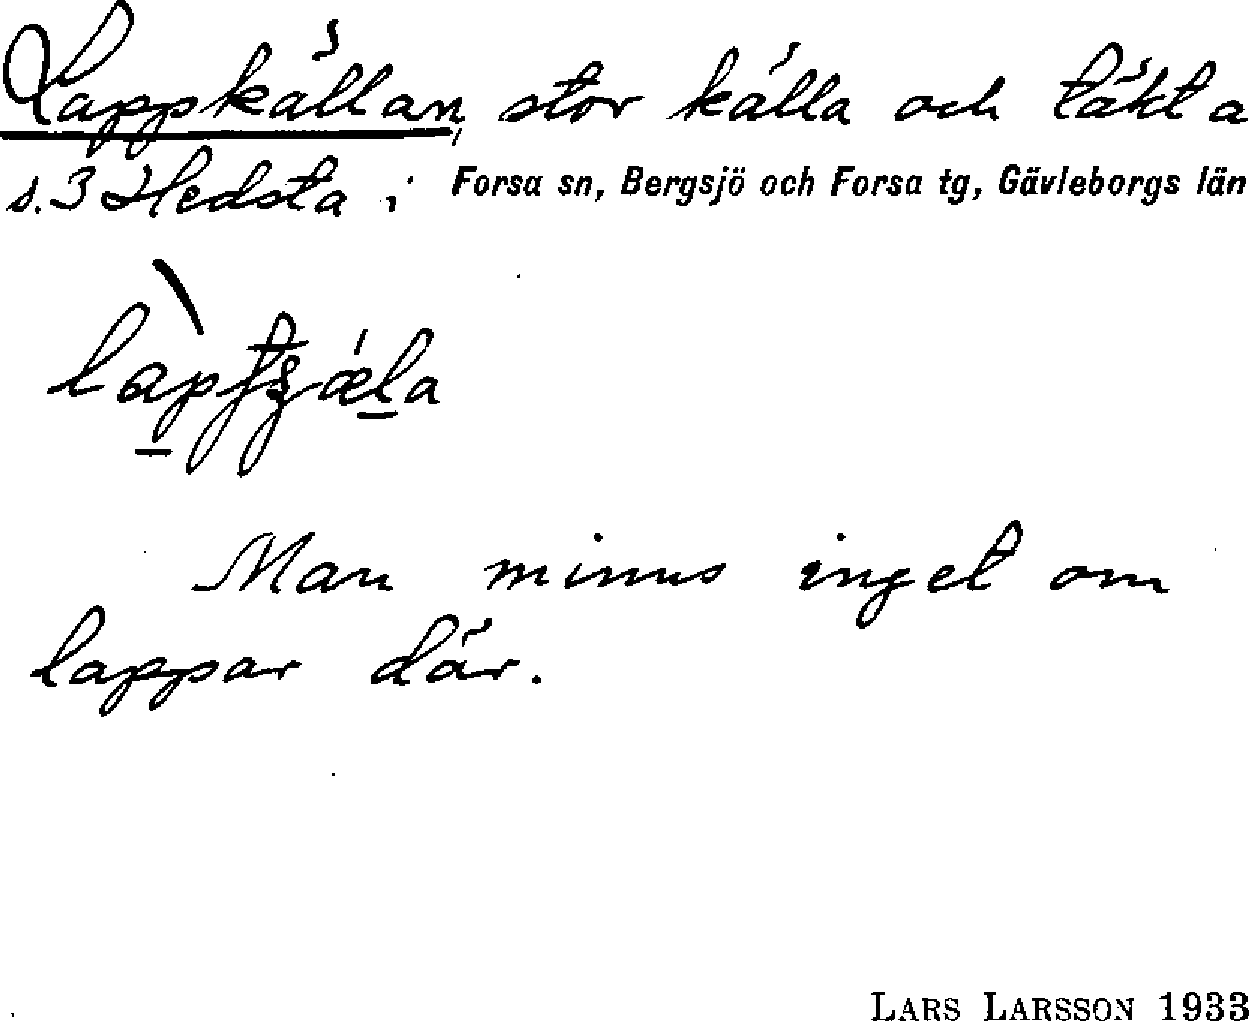 Lappkällan, stor källa och täkt a
s. 3 Hedsta i Forsa sn, Bergsjö och Forsa tg, Gävleborgs län
Man minns inget om
lappar där.
LARS LARSSON 1933